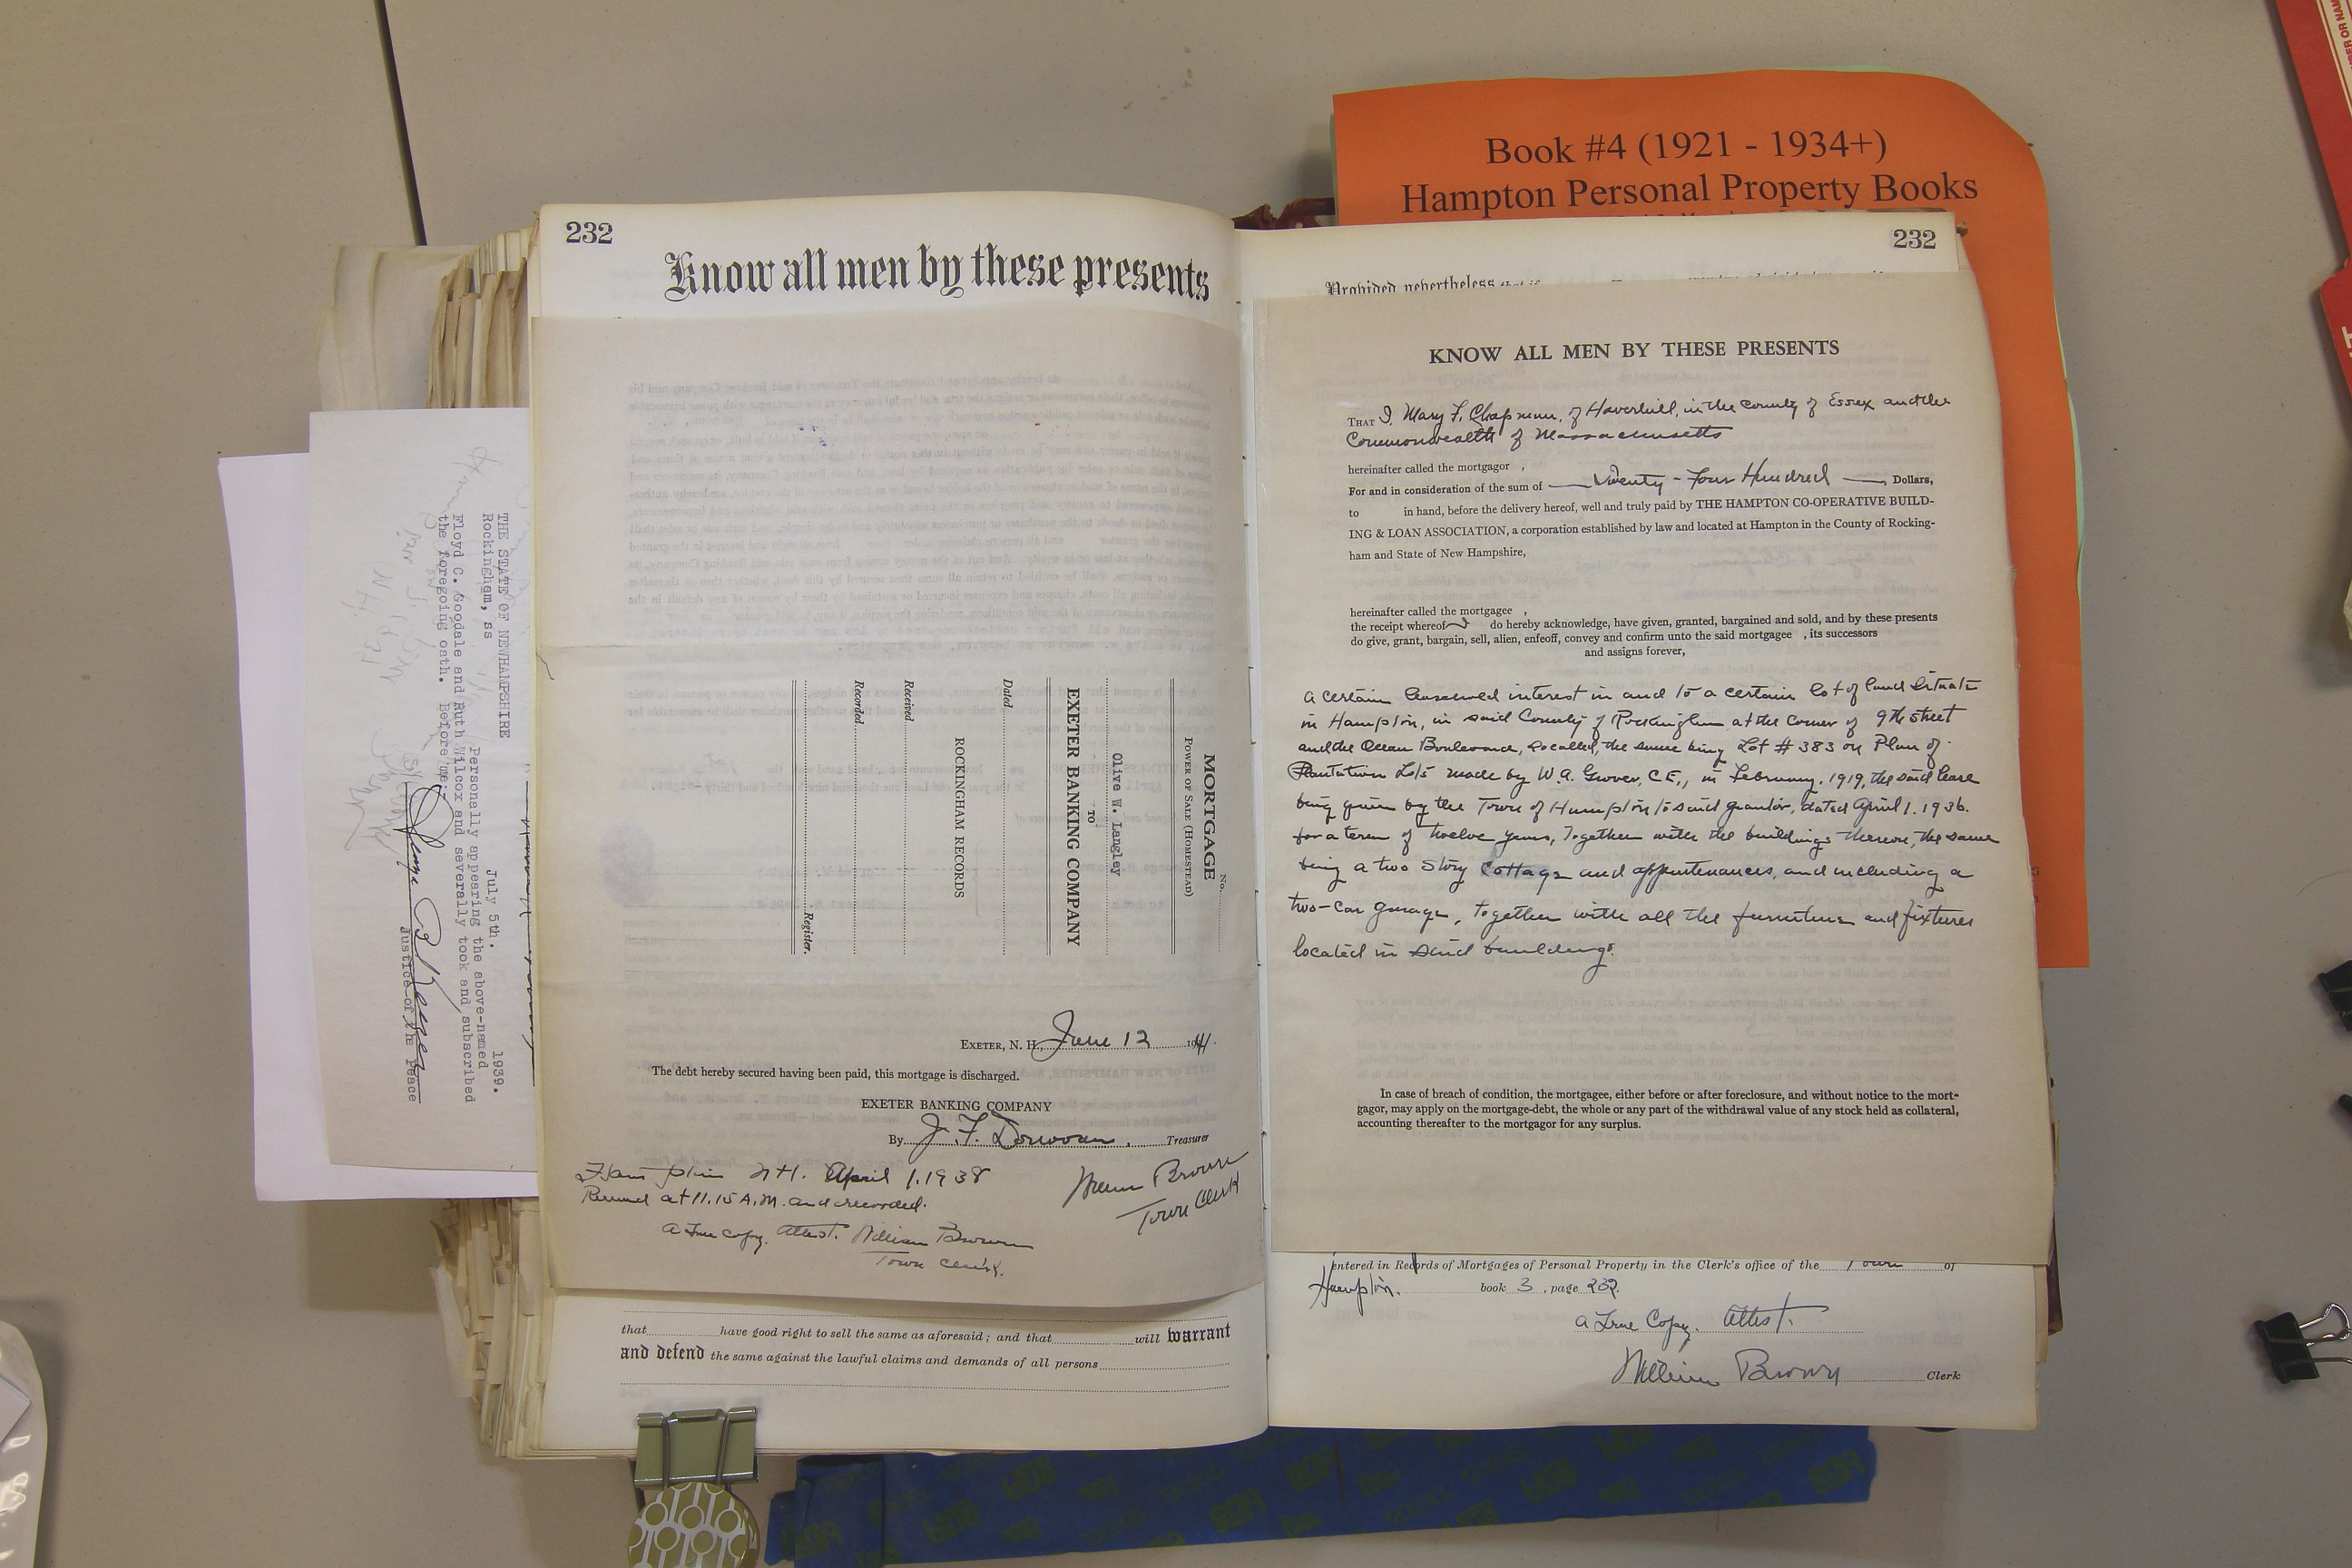 Book #4 (1921 - 1934+)
Hampton Personal Property Books
232
Know all men by these presents
MORTGAGE
No.
POWER OF SALE (HOMESTEAD)
Olive W. Langley
TO
EXETER BANKING COMPANY
Dated
ROCKINGHAM RECORDS
Received
Recorded
Register.
EXETER, N. H., June 12 1941.
The debt hereby secured having been paid, this mortgage is discharged.
EXETER BANKING COMPANY
By J. F. Donovan. Treasurer
Hampton N.H. April 1. 1938
Received at 11.15 A.M. and recorded.
William Brown
Town Clerk
A True Copy, Attest. William Brown
Town Clerk.
that have good right to sell the same as aforesaid; and that will warrant
and defend the same against the lawful claims and demands of all persons
THE STATE OF NEWHAMPSHIRE
Rockingham, ss July 5th. 1939.
Personally appearing the above-named
Floyd C. Goodale and Ruth Wilcox and severally took and subscribed
the foregoing oath. Before me:
Justice of the Peace
232
Provided nevertheless that if
KNOW ALL MEN BY THESE PRESENTS
THAT I, Mary F. Chapman, of Haverhill, in the county of Essex and the
Commonwealth of Massachusetts
hereinafter called the mortgagor ,
For and in consideration of the sum of Twenty - Four Hundred Dollars,
to in hand, before the delivery hereof, well and truly paid by THE HAMPTON CO-OPERATIVE BUILD-
ING & LOAN ASSOCIATION, a corporation established by law and located at Hampton in the County of Rocking-
ham and State of New Hampshire,
hereinafter called the mortgagee ,
the receipt whereof I do hereby acknowledge, have given, granted, bargained and sold, and by these presents
do give, grant, bargain, sell, alien, enfeoff, convey and confirm unto the said mortgagee , its successors
and assigns forever,
a certain leasehold interest in and to a certain lot of land situate
in Hampton, in said County of Rockingham at the corner of 9th street
and the Ocean Boulevard, so called, the same being Lot # 383 on Plan of
Plantation Lots made by W.A. Grover, C.E., in February, 1919, the said lease
being given by the Town of Hampton to said grantor, dated April 1. 1936.
for a term of twelve years, Together with the buildings thereon, the same
being a two story Cottage and appurtenances, and including a
two-car garage, together with all the furniture and fixtures
located in said buildings.
In case of breach of condition, the mortgagee, either before or after foreclosure, and without notice to the mort-
gagor, may apply on the mortgage-debt, the whole or any part of the withdrawal value of any stock held as collateral,
accounting thereafter to the mortgagor for any surplus.
entered in Records of Mortgages of Personal Property in the Clerk's office of the Town of
Hampton. book 3 , page 232.
A True Copy, Attest.
William Brown Clerk